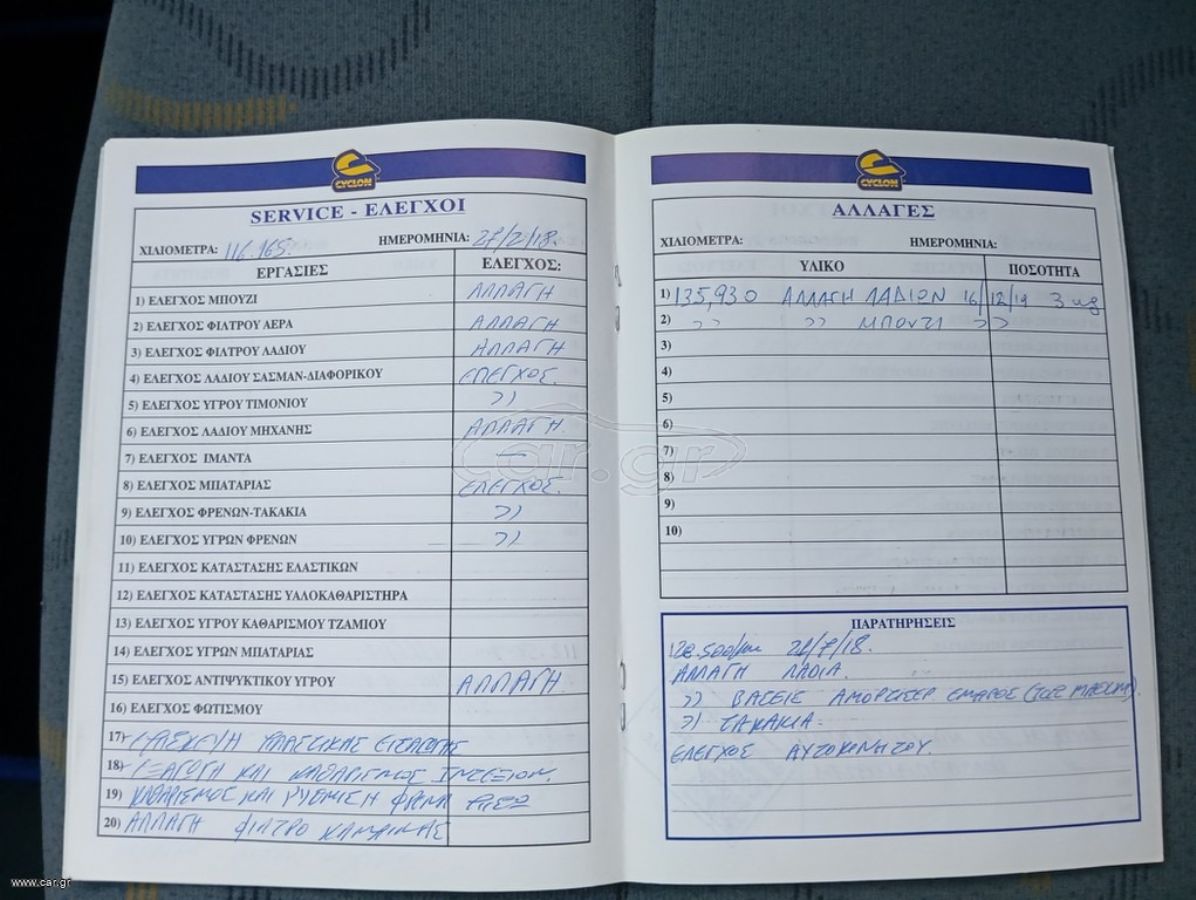 CYCLON
SERVICE - ΕΛΕΓΧΟΙ
ΧΙΛΙΟΜΕΤΡΑ: 116.165. ΗΜΕΡΟΜΗΝΙΑ: 27/2/18.
ΕΡΓΑΣΙΕΣ ΕΛΕΓΧΟΣ:
1) ΕΛΕΓΧΟΣ ΜΠΟΥΖΙ ΑΛΛΑΓΗ
2) ΕΛΕΓΧΟΣ ΦΙΛΤΡΟΥ ΑΕΡΑ ΑΛΛΑΓΗ
3) ΕΛΕΓΧΟΣ ΦΙΛΤΡΟΥ ΛΑΔΙΟΥ ΑΛΛΑΓΗ
4) ΕΛΕΓΧΟΣ ΛΑΔΙΟΥ ΣΑΣΜΑΝ-ΔΙΑΦΟΡΙΚΟΥ ΕΛΕΓΧΟΣ.
5) ΕΛΕΓΧΟΣ ΥΓΡΟΥ ΤΙΜΟΝΙΟΥ >)
6) ΕΛΕΓΧΟΣ ΛΑΔΙΟΥ ΜΗΧΑΝΗΣ ΑΛΛΑΓΗ.
7) ΕΛΕΓΧΟΣ ΙΜΑΝΤΑ —
8) ΕΛΕΓΧΟΣ ΜΠΑΤΑΡΙΑΣ ΕΛΕΓΧΟΣ.
9) ΕΛΕΓΧΟΣ ΦΡΕΝΩΝ-ΤΑΚΑΚΙΑ >)
10) ΕΛΕΓΧΟΣ ΥΓΡΩΝ ΦΡΕΝΩΝ >)
11) ΕΛΕΓΧΟΣ ΚΑΤΑΣΤΑΣΗΣ ΕΛΑΣΤΙΚΩΝ
12) ΕΛΕΓΧΟΣ ΚΑΤΑΣΤΑΣΗΣ ΥΑΛΟΚΑΘΑΡΙΣΤΗΡΑ
13) ΕΛΕΓΧΟΣ ΥΓΡΟΥ ΚΑΘΑΡΙΣΜΟΥ ΤΖΑΜΙΟΥ
14) ΕΛΕΓΧΟΣ ΥΓΡΩΝ ΜΠΑΤΑΡΙΑΣ
15) ΕΛΕΓΧΟΣ ΑΝΤΙΨΥΚΤΙΚΟΥ ΥΓΡΟΥ ΑΛΛΑΓΗ.
16) ΕΛΕΓΧΟΣ ΦΩΤΙΣΜΟΥ
17) ΕΠΙΣΚΕΥΗ ΕΙΣΑΓΩΓΗΣ
18) ΕΞΑΓΩΓΗ ΚΑΙ ΚΑΘΑΡΙΣΜΟΣ ΙΝΤΖΕΞΙΟΝ.
19) ΚΑΘΑΡΙΣΜΟΣ ΚΑΙ ΡΥΘΜΙΣΗ ΦΡΕΝΑ ΠΙΣΩ
20) ΑΛΛΑΓΗ ΦΙΛΤΡΟ ΚΑΜΠΙΝΑΣ
CYCLON
ΑΛΛΑΓΕΣ
ΧΙΛΙΟΜΕΤΡΑ: ΗΜΕΡΟΜΗΝΙΑ:
ΥΛΙΚΟ ΠΟΣΟΤΗΤΑ
1) 135,930 ΑΛΛΑΓΗ ΛΑΔΙΩΝ 16/12/19 3 kg
2) >> >> ΜΠΟΥΖΙ >>
3)
4)
5)
6)
7)
8)
9)
10)
ΠΑΡΑΤΗΡΗΣΕΙΣ
128.500/km 21/7/18.
ΑΛΛΑΓΗ ΛΑΔΙΑ.
>) ΒΑΣΕΙΣ ΑΜΟΡΤΙΣΕΡ ΕΜΠΡΟΣ
>) ΤΑΚΑΚΙΑ.
ΕΛΕΓΧΟΣ ΑΥΤΟΚΙΝΗΤΟΥ.
car.gr
www.car.gr